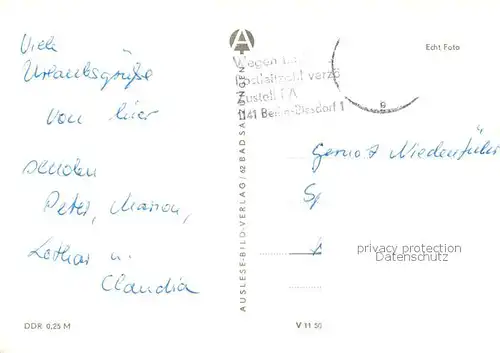 Viele
Urlaubsgrüße
von hier
senden
Peter, Marion,
Lothar u.
Claudia
DDR 0,25 M
A
AUSLESE-BILD-VERLAG / 62 BAD SALZUNGEN
Wegen
verzö
Zustell
1141 Berlin-Biesdorf 1
Echt Foto
Gernot
privacy protection
Datenschutz
V 11 50